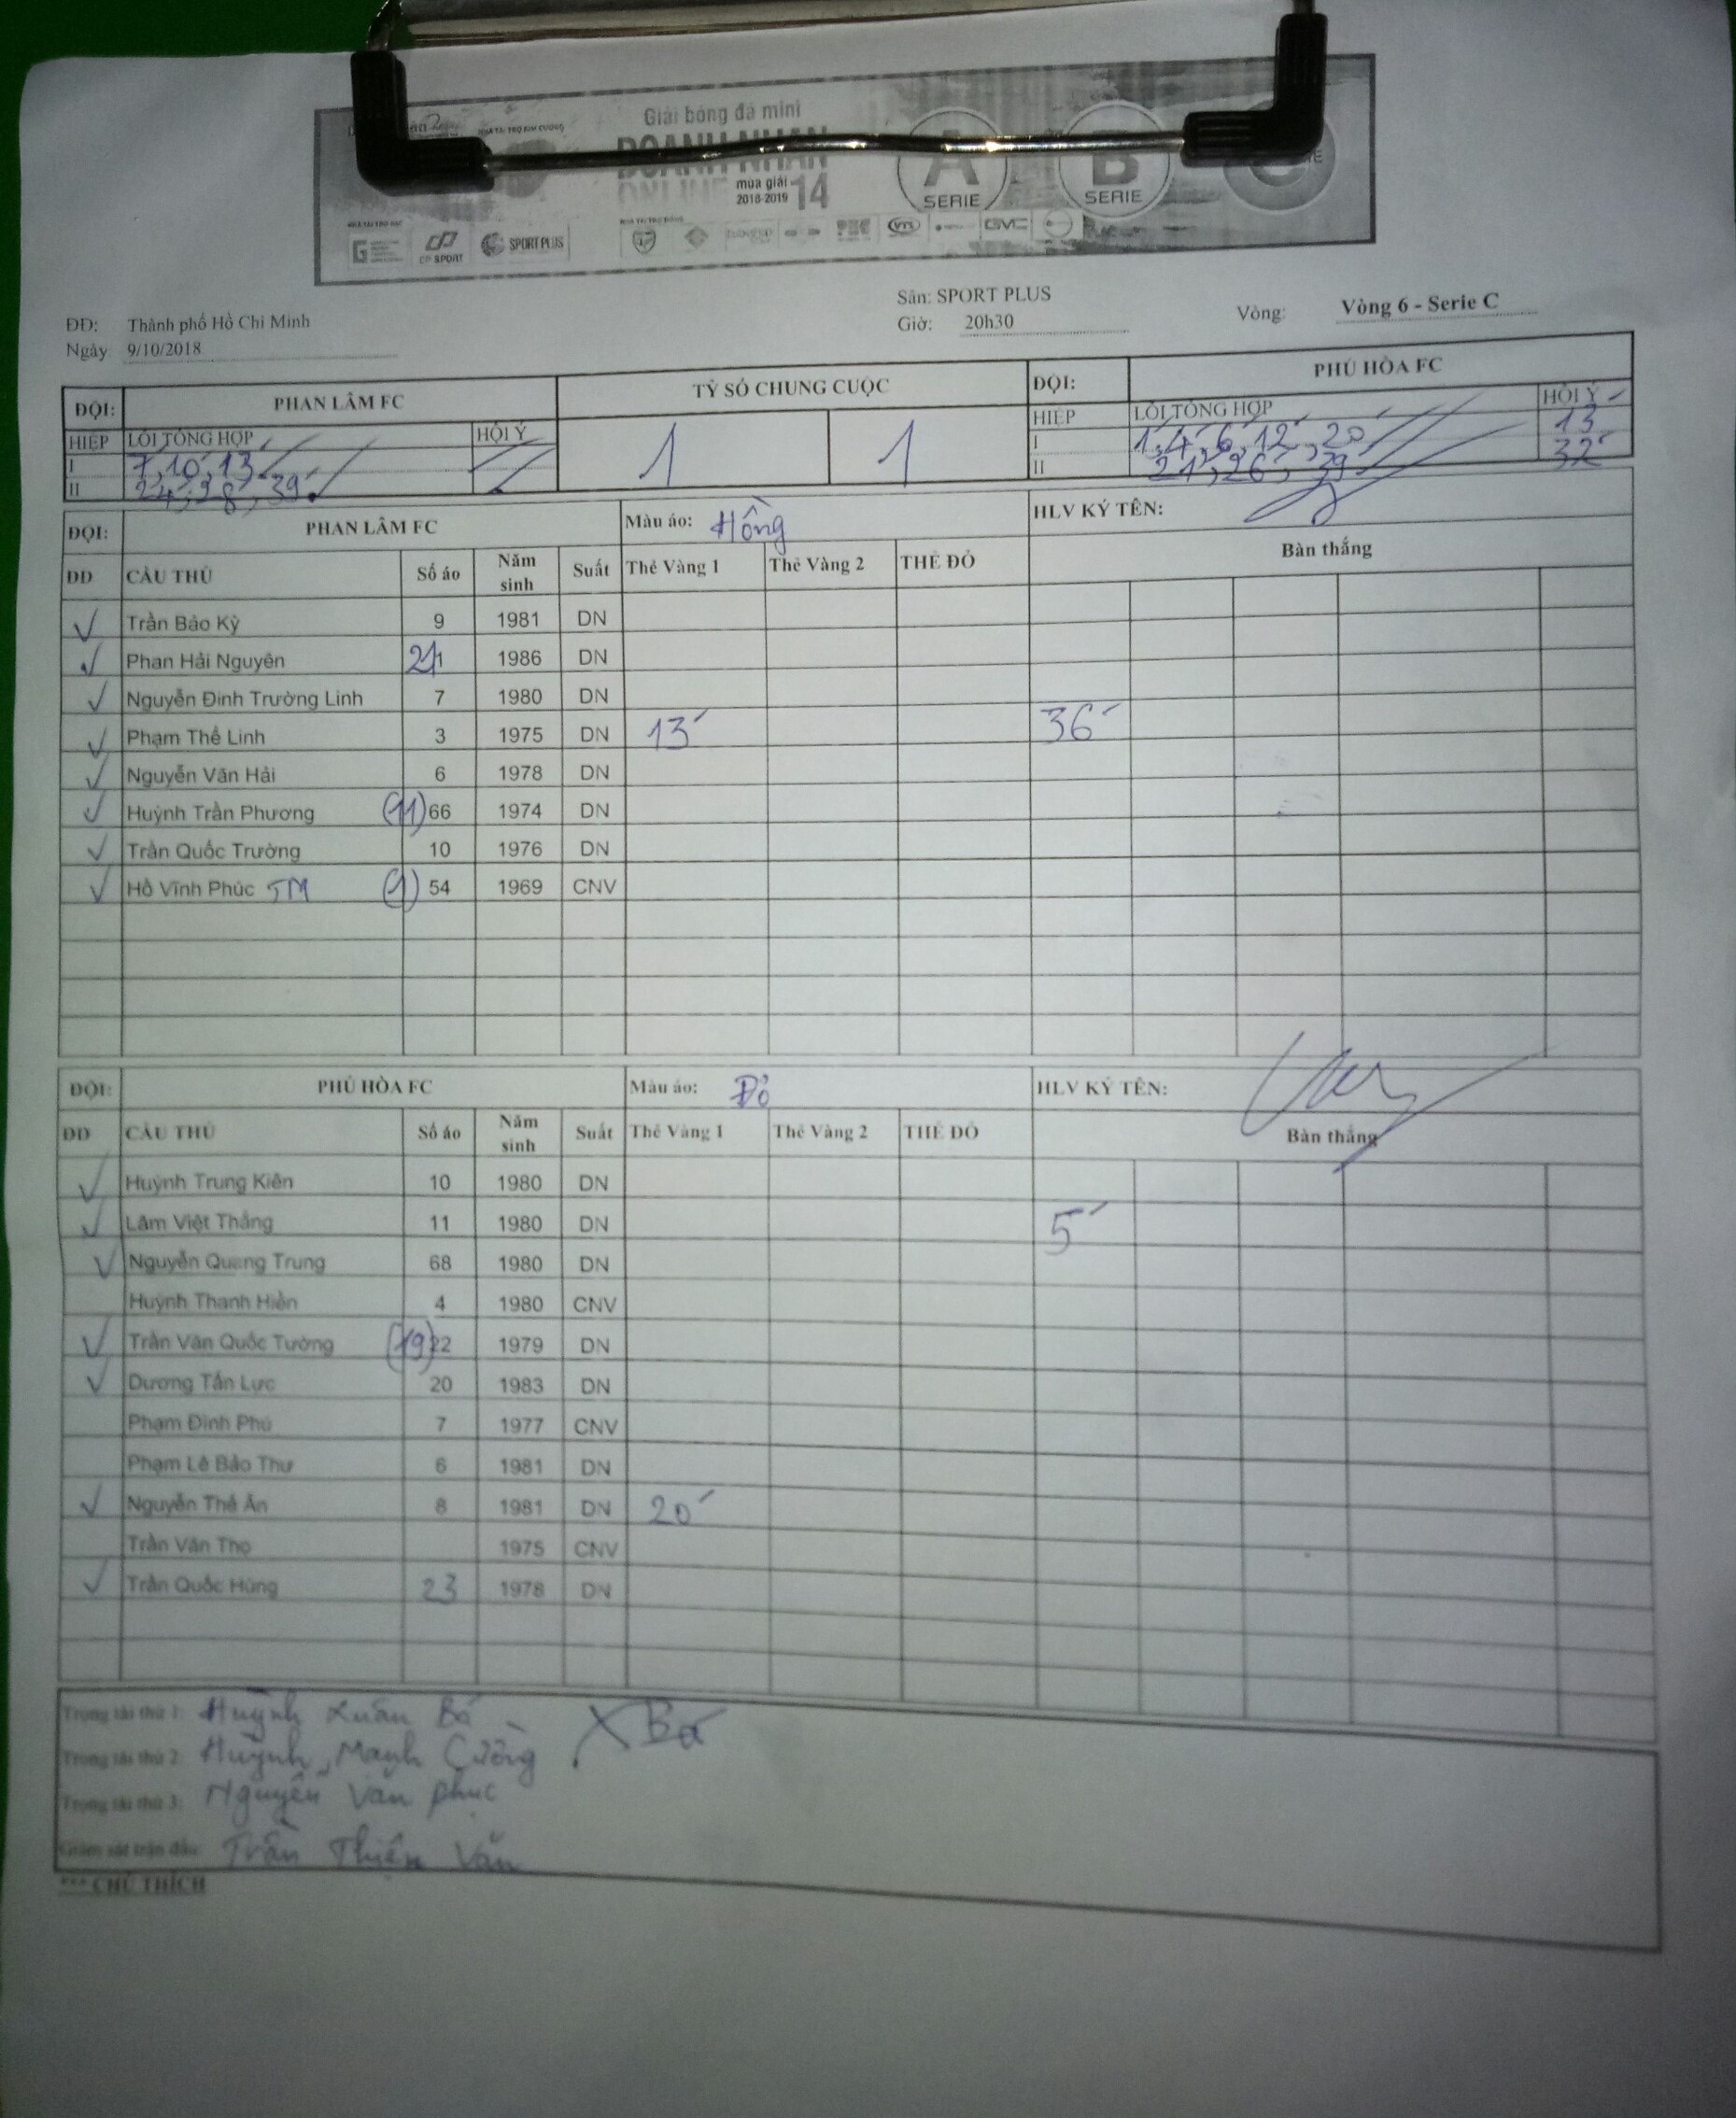 NHÀ TÀI TRỢ KIM CƯƠNG
Giải bóng đá mini
DOANH NHÂN
ONLINE mùa giải 2018-2019 14
A SERIE
B SERIE
CP SPORT
SPORT PLUS
GVC
ĐĐ: Thành phố Hồ Chí Minh
Sân: SPORT PLUS
Ngày 9/10/2018
Giờ: 20h30
Vòng: Vòng 6 - Serie C
ĐỘI: PHAN LÂM FC TỶ SỐ CHUNG CUỘC ĐỘI: PHÚ HÒA FC
HIỆP LỖI TỔNG HỢP HỘI Ý 1 1 HIỆP LỖI TỔNG HỢP HỘI Ý
I 7, 10, 13 I 1, 4, 6, 12, 20 13
II 24, 28, 39 II 21, 26, 39 32
ĐỘI: PHAN LÂM FC Màu áo: Hồng HLV KÝ TÊN:
ĐD CẦU THỦ Số áo Năm sinh Suất Thẻ Vàng 1 Thẻ Vàng 2 THẺ ĐỎ Bàn thắng
Trần Bảo Kỳ 9 1981 DN
Phan Hải Nguyên 21 1986 DN
Nguyễn Đình Trường Linh 7 1980 DN
Phạm Thế Linh 3 1975 DN 13' 36'
Nguyễn Văn Hải 6 1978 DN
Huỳnh Trần Phương (11) 66 1974 DN
Trần Quốc Trường 10 1976 DN
Hồ Vĩnh Phúc TM (1) 54 1969 CNV
ĐỘI: PHÚ HÒA FC Màu áo: Đỏ HLV KÝ TÊN:
ĐD CẦU THỦ Số áo Năm sinh Suất Thẻ Vàng 1 Thẻ Vàng 2 THẺ ĐỎ Bàn thắng
Huỳnh Trung Kiên 10 1980 DN
Lâm Việt Thắng 11 1980 DN 5'
Nguyễn Quang Trung 68 1980 DN
Huỳnh Thanh Hiền 4 1980 CNV
Trần Văn Quốc Tường (19) 22 1979 DN
Dương Tấn Lực 20 1983 DN
Phạm Đình Phú 7 1977 CNV
Phạm Lê Bảo Thư 6 1981 DN
Nguyễn Thế Ân 8 1981 DN 20'
Trần Văn Thọ 1975 CNV
Trần Quốc Hùng 23 1978 DN
Trọng tài thứ 1: Huỳnh Xuân Bá X Bá
Trọng tài thứ 2: Huỳnh Mạnh Cường
Trọng tài thứ 3: Nguyễn Văn Phúc
Giám sát trận đấu: Trần Thiện Văn
*** CHÚ THÍCH